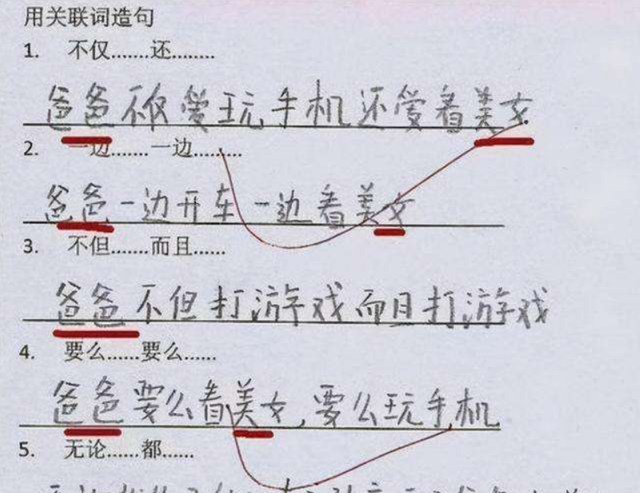 用关联词造句
1. 不仅……还……
爸爸不仅爱玩手机还爱看美女
2. 一边……一边……
爸爸一边开车一边看美女
3. 不但……而且……
爸爸不但打游戏而且打游戏
4. 要么……要么……
爸爸要么看美女,要么玩手机
5. 无论……都……